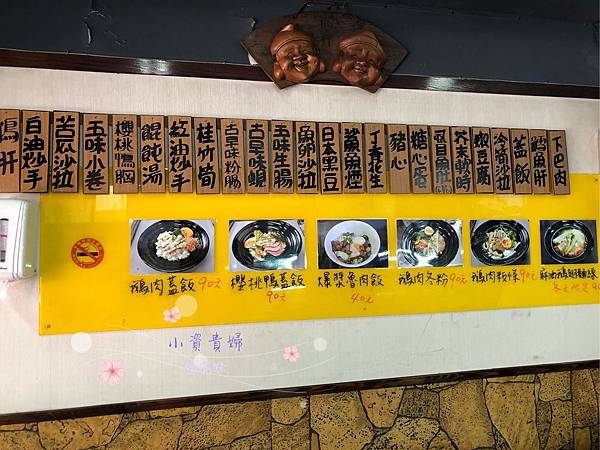 下巴肉
鯊魚肝
蓋飯
冷筍沙拉
嫩豆腐
芥辣時
虱目魚肚
糖心蛋
豬心
丁香花生
鯊魚煙
日本黑豆
魚卵沙拉
五味生腸
古早味蜆
古早味粉腸
桂竹筍
紅油炒手
餛飩湯
櫻桃鴨胸
五味小卷
苦瓜沙拉
白油炒手
鴨肝
鵝肉蓋飯90元
櫻桃鴨蓋飯
90元
爆漿魯肉飯
40元
鵝肉冬粉90元
鵝肉粄條90元
麻油鵝
小資貴婦